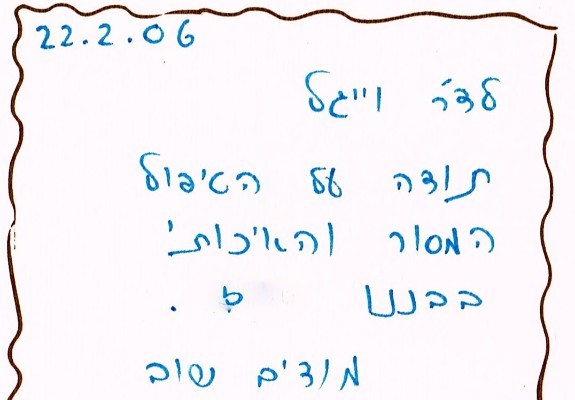 22.2.06
לד״ר וייגל
תודה על הטיפול
המסור והאיכותי
בבננו .
מודים שוב